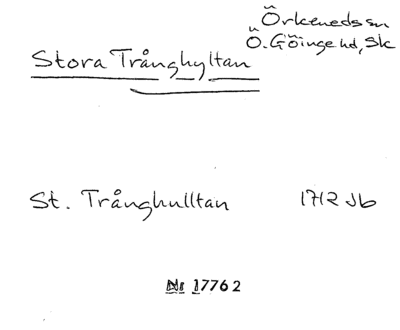 Örkeneds sn
Stora Trånghyltan Ö. Göinge hd, Sk
St. Trånghulltan 1712 Jb
Nr 17762